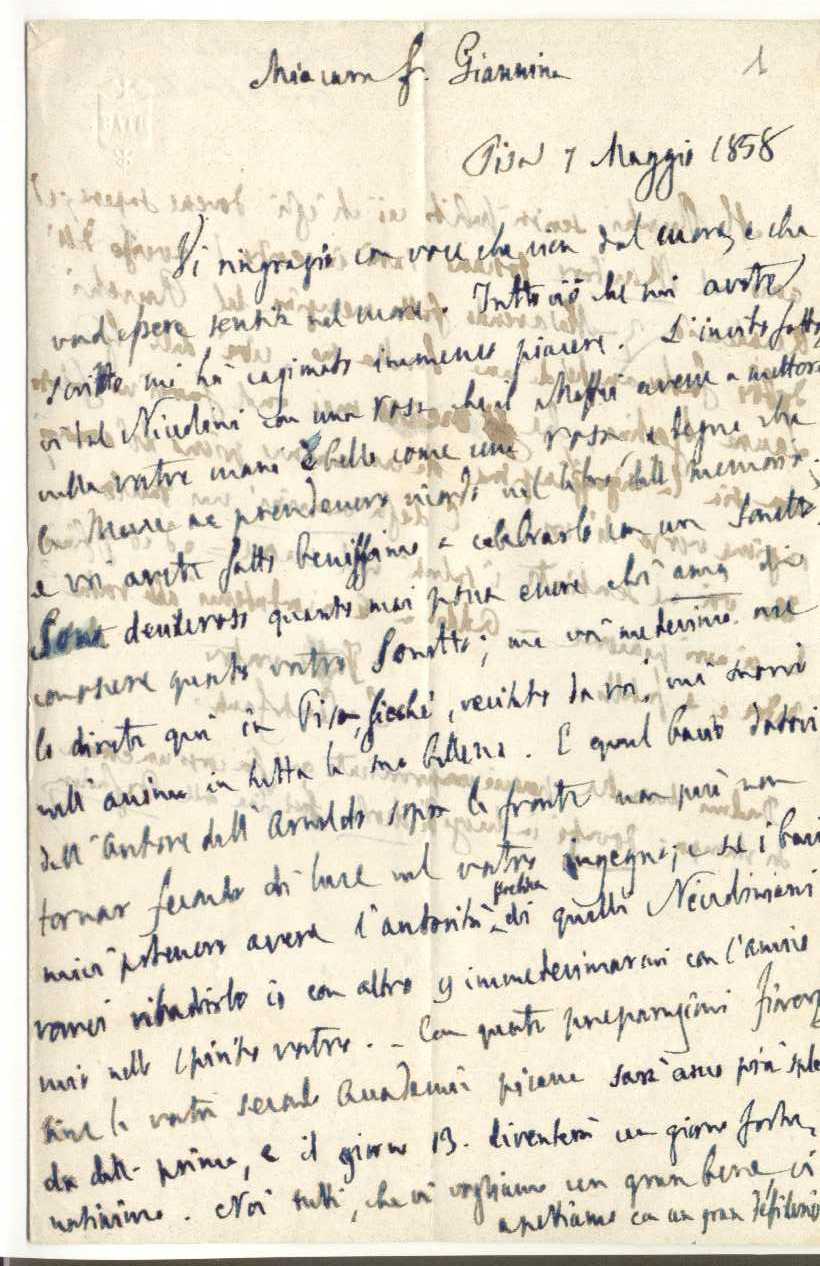 Mia cara Sra. Giannina
1
Pisa 7 Maggio 1858
Vi ringrazio con voce che vien dal cuore, e che
vuol essere sentita nel cuore. Tutto ciò che mi avete
scritto mi ha cagionato immenso piacere. L'invito fatto
vi dal Niccolini con una rosa che il Maffei avesse a mettere
nella vostra mano è bello come una rosa, e degno che
le Muse ne prendessero ricordo nel libro della memoria.
e voi avete fatto benissimo a celebrarlo con un Sonetto.
Sono desideroso quanto mai possa essere chi ama di
conoscere questo vostro Sonetto; ma voi medesima me
lo direte qui in Pisa, sicché, recitato da voi, mi suoni
nell'anima in tutta la sua bellezza. E quel bacio datovi
dall'Autore dell'Arnaldo sopra la fronte non può non
tornar fecondo di luce nel vostro ingegno; e se i baci
miei potessero avere l'autorità poetica di quelli Niccoliniani
vorrei ribadirlo io con altro e immedesimarmi con l'amico
mio nello spirito vostro. - Con queste preparazioni fioren
tine la vostra seconda Accademia pisana sarà assai più splen
da della prima, e il giorno 13. diventerà un giorno fortu
natissimo. Noi tutti, che vi vogliamo un gran bene, vi
aspettiamo con un gran desiderio